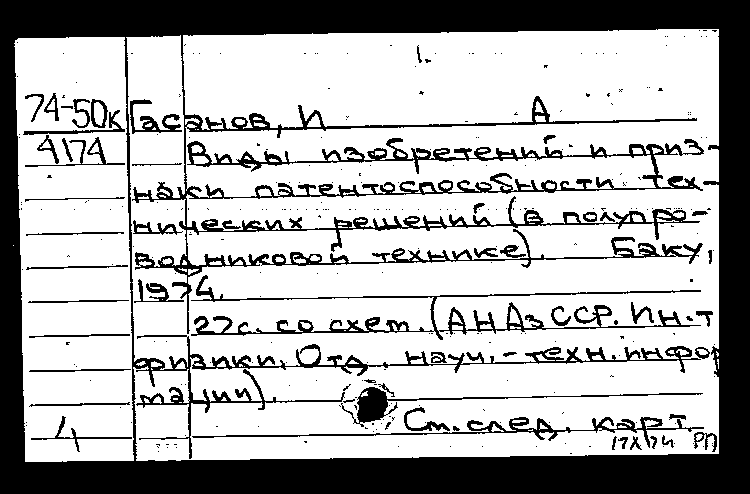 1.
74-50к Гасанов, И А
4174 Виды изобретений и приз-
наки патентоспособности тех-
нических решений (в полупро-
водниковой технике). Баку,
1974.
27с. со схем. (АН АзССР. Ин-т
физики. Отд. науч.-техн. инфор
мации).
4 См. след. карт.
17X74 РП